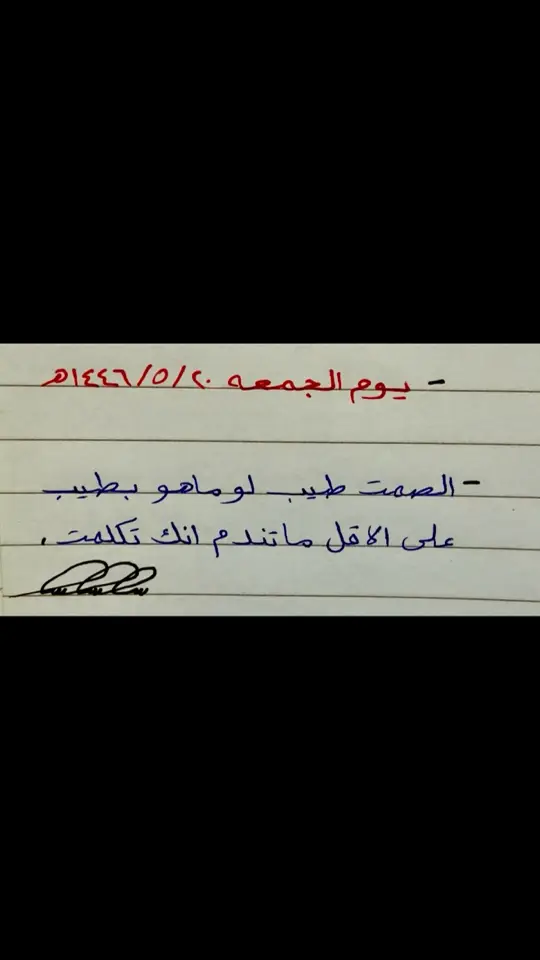 - يوم الجمعه ٢٠/٥/١٤٤٦هـ
- الصمت طيب لو ماهو بطيب
على الاقل ماتندم انك تكلمت .